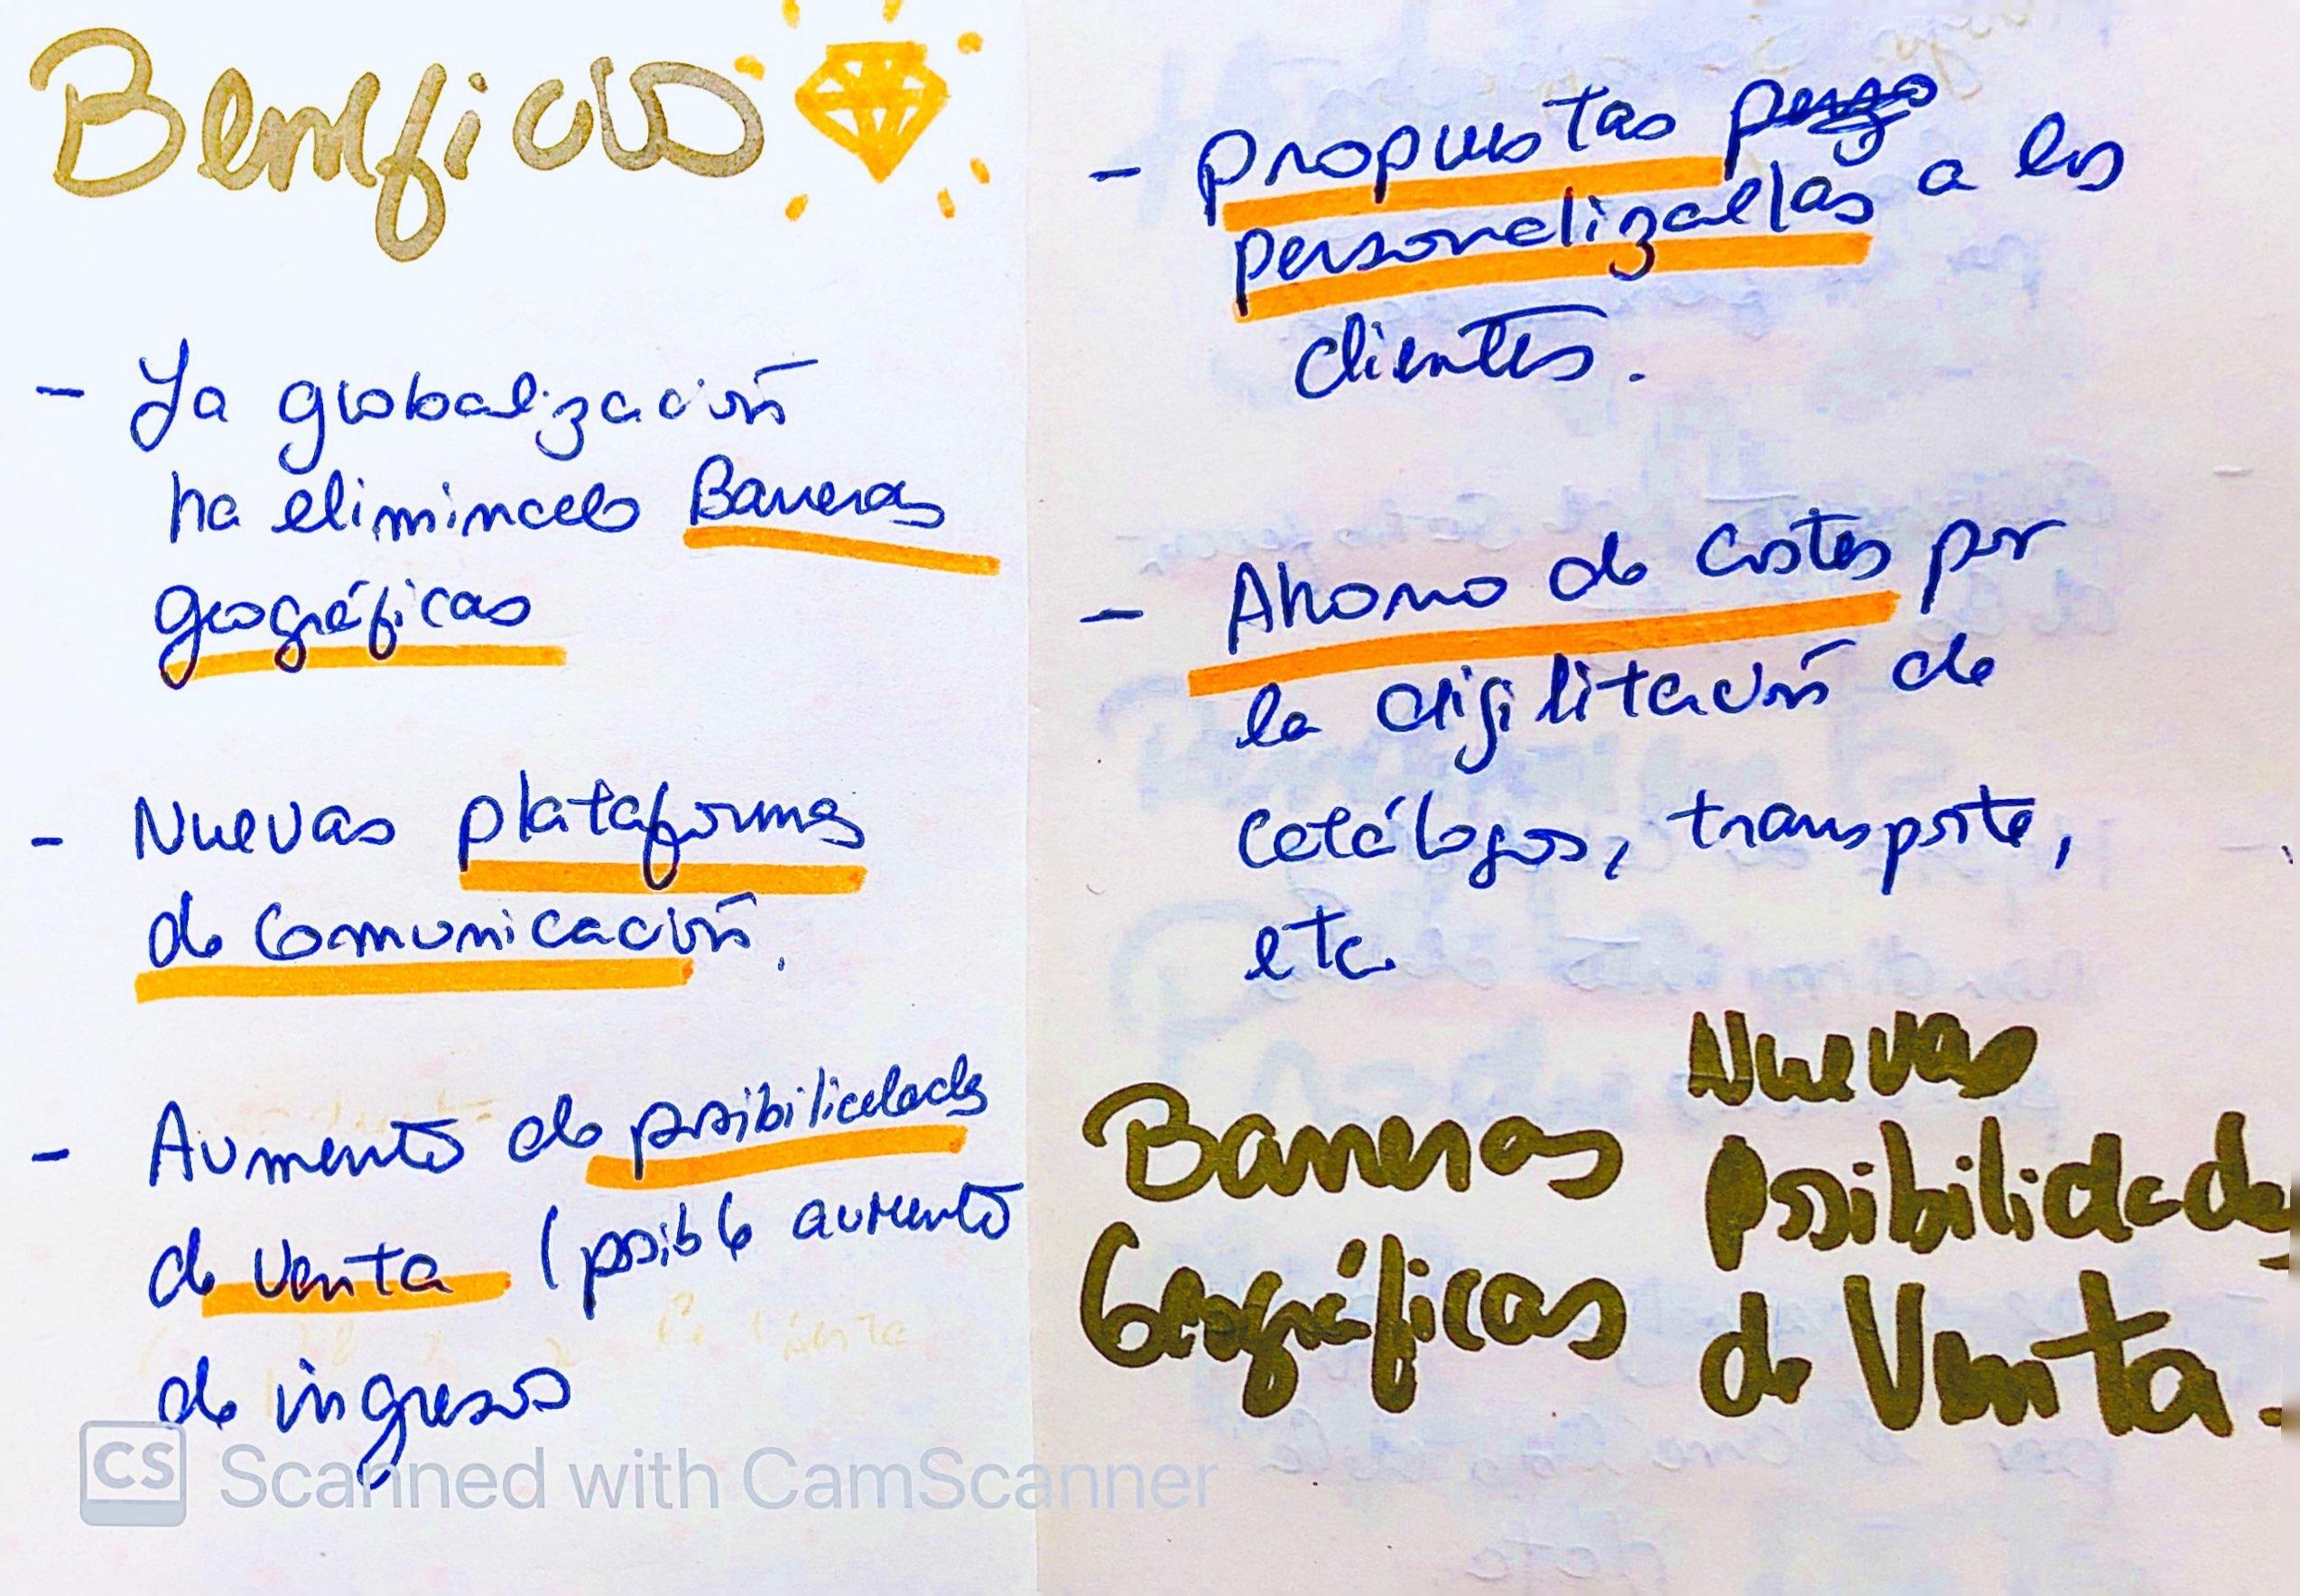 Beneficios
- La globalización
ha elimincado Barreras
geográficas
- Nuevas plataformas
de comunicación.
- Aumento de posibilidades
de venta (posible aumento
de ingresos
- propuestas
personalizadas a los
clientes.
- Ahorro de costes por
la digilitación de
catálogos, transporte,
etc.
Barreras
Geográficas
Nuevas
posibilidades
de Venta.
CS Scanned with CamScanner